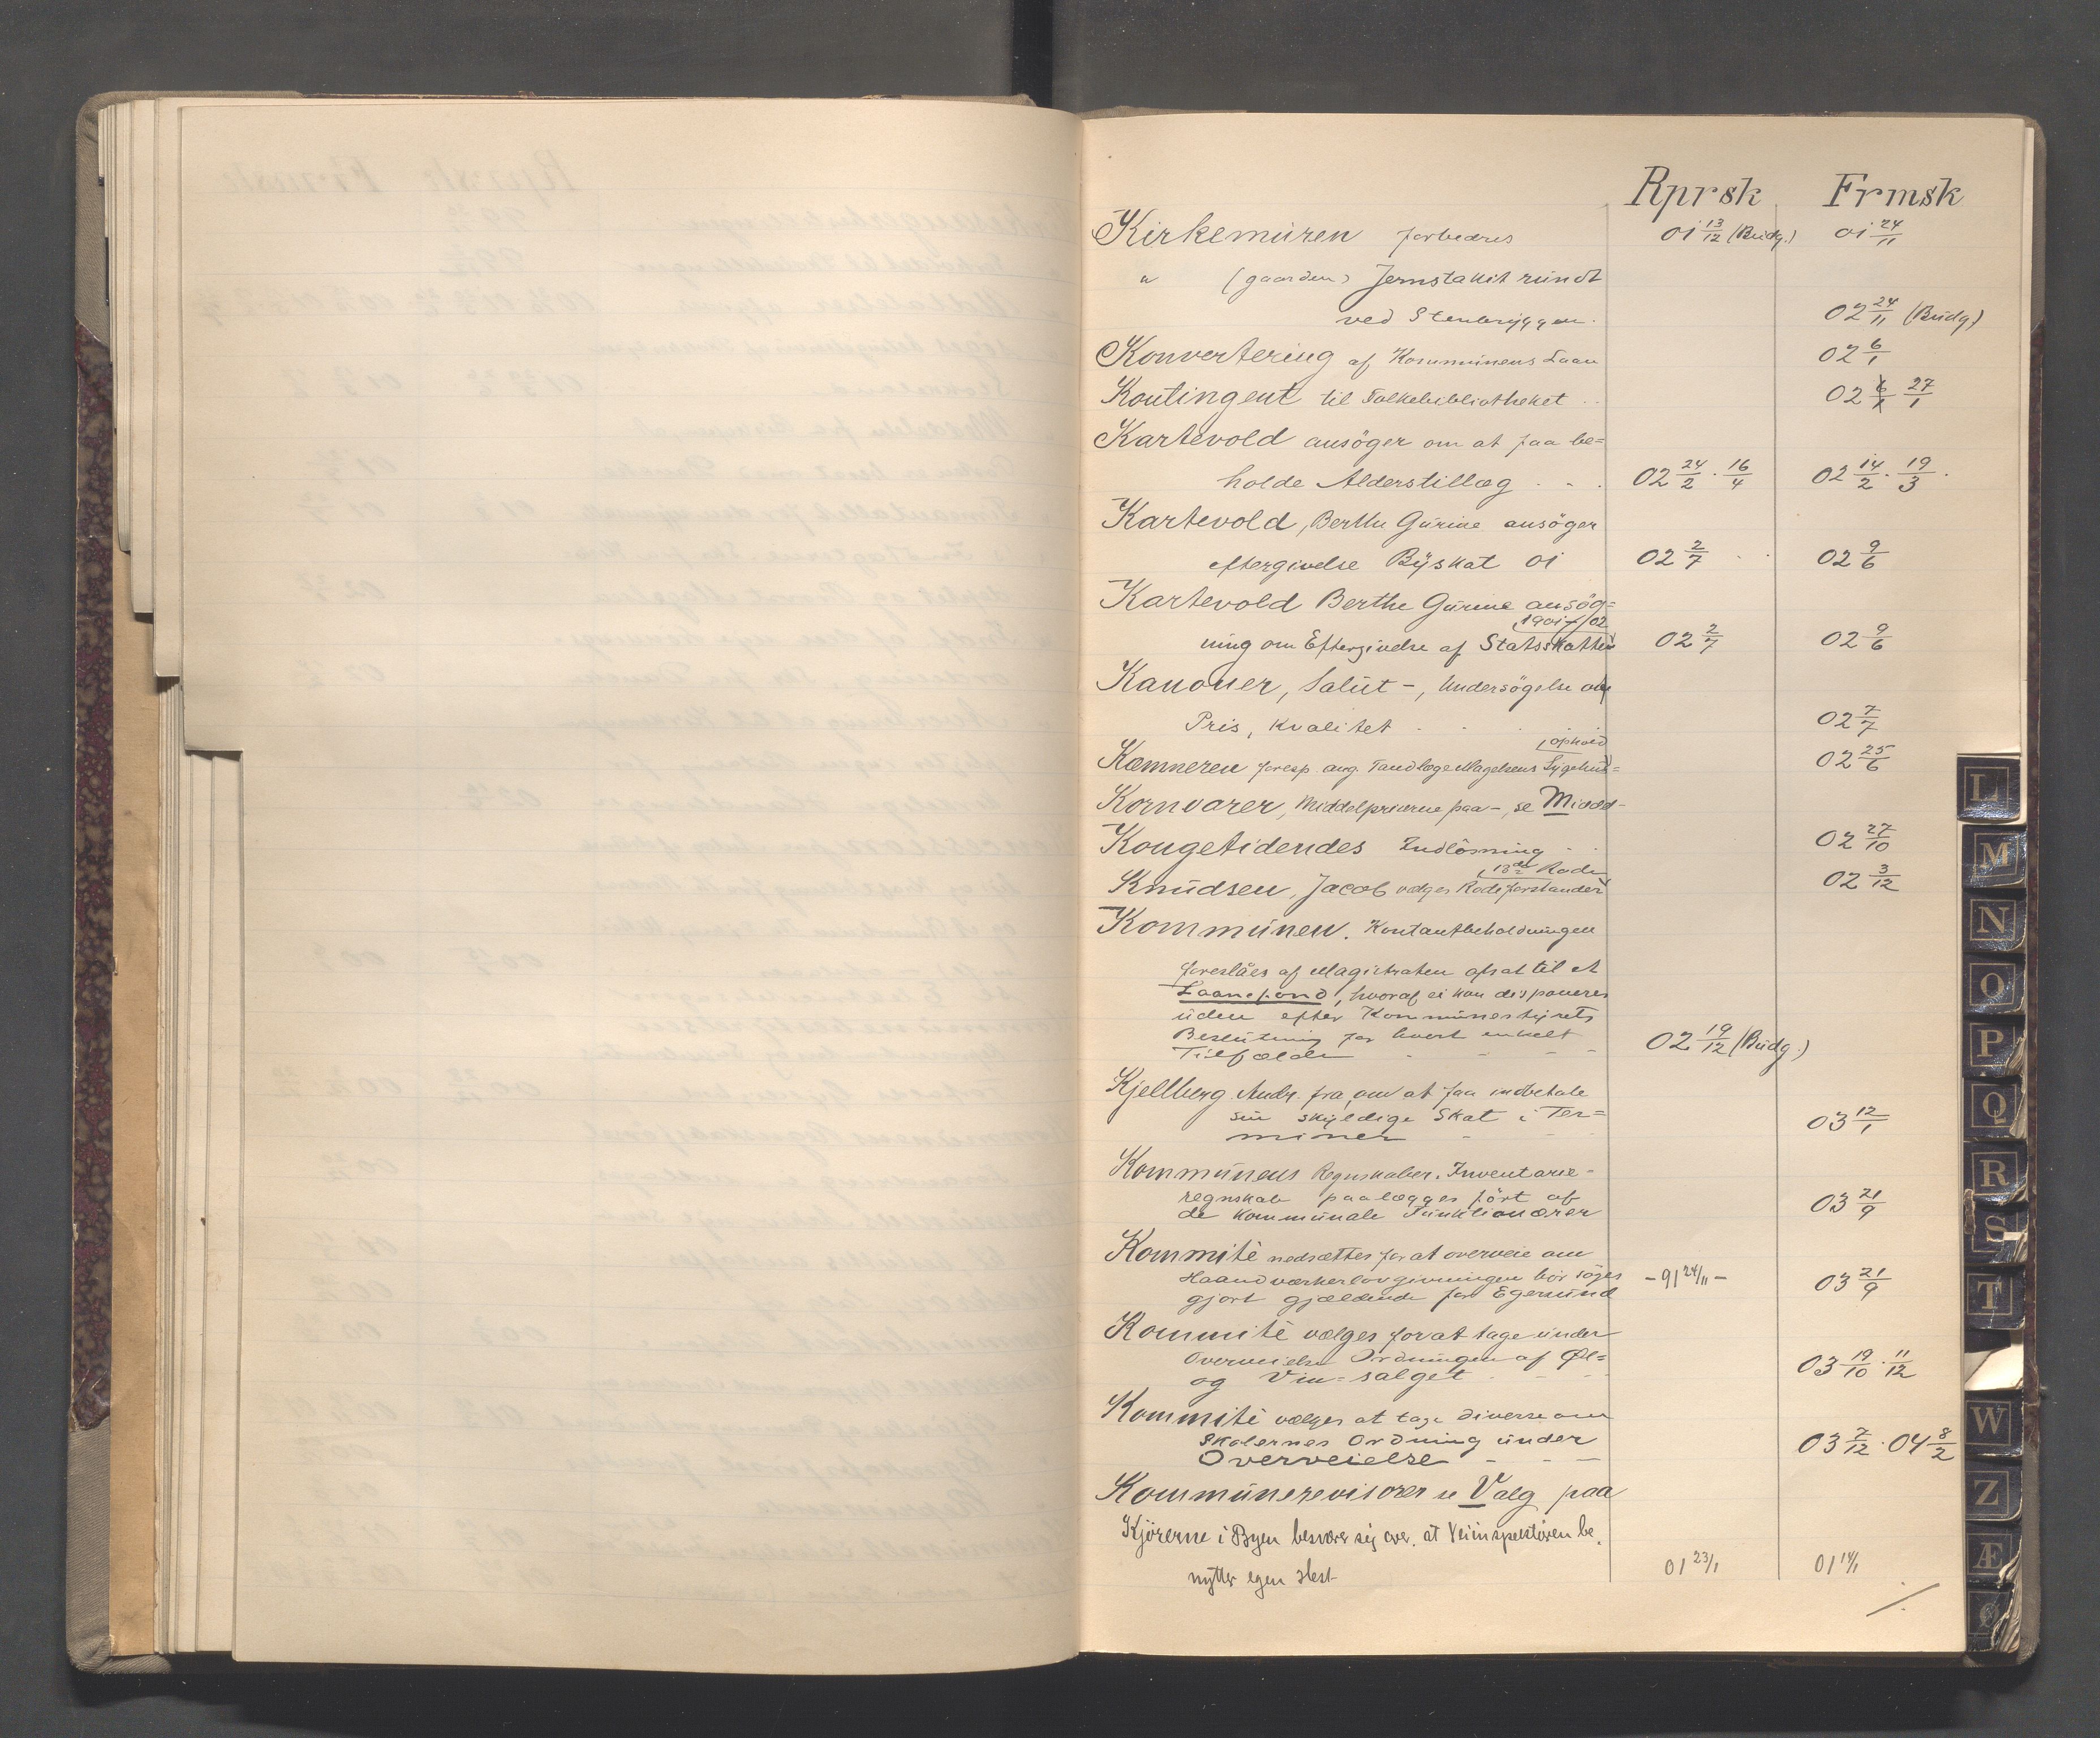 Rprsk Frmsk
Kirkemúren forbedres 01 13/12 (Búdg.) 01 24/11
" (gaarden) Jernstakit rúndt
ved Stenbryggen. 02 24/11 (Búdg)
Konvertering af Kommúnens Laan 02 6/1
Kontingent til Folkebibliotheket 02 6/1 27/1
Kartevold ansöger om at faa be=
holde Alderstillæg 02 24/2 · 16/4 02 14/2 · 19/3
Kartevold, Berthe Gúrine ansöger
eftergivelse Býskat 01 02 2/7 02 9/6
Kartevold Berthe Gúrine ansög=
1901-/02
ning om Eftergivelse af Statsskatten 02 2/7 02 9/6
Kanoner, Salút-, Undersögelse om
Pris, kvalitet 02 7/7
ophold
Kæmneren foresp. ang. Tandlæge Magelsens Sýgehús= 02 25/6
Kornvarer, Middelpriserne paa-, se Middel-
Kongetidendes Indlösning 02 27/10
18de Rode
Knúdsen, Jacob vælges Rodeforstander 02 3/12
Kommúnen. Kontantbeholdningen
foreslåes af Magistraten afsat til et
Laanefond, hvoraf ei kan disponeres
úden efter Kommúnestýrets
Beslútning for hvert enkelt
Tilfælde 02 19/12 (Búdg.)
Kjellberg Andr. fra, om at faa indbetale
sin skýldige Skat i Ter=
miner 03 12/1
Kommúnens Regnskaber. Inventarie-
regnskab paalægges fört af
de kommúnale Fúnktionærer 03 21/9
Kommitè nedsættes for at overveie om
Haandværkerlovgivningen bör söges -91 24/11- 03 21/9
gjort gjældende for Egersúnd
Kommitè vælges for at tage únder
Overveielse Ordningen af Øl=
og Vin=salget 03 19/10 · 11/12
Kommitè vælges at tage diverse om
Skolernes Ordning únder
Overveielse 03 7/12 · 04 8/2
Kommúnerevisorer se Valg paa
Kjörerne i Byen besværer sig over, at Veiinspektören be.
nytter egen Hest 01 23/1 01 14/1
L
M
N
O
P
Q
R
S
T
W
Z
Æ
Ø